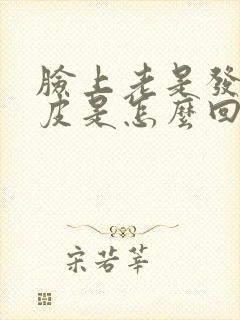 臉上老是發
皮是怎麼回
宋若莘